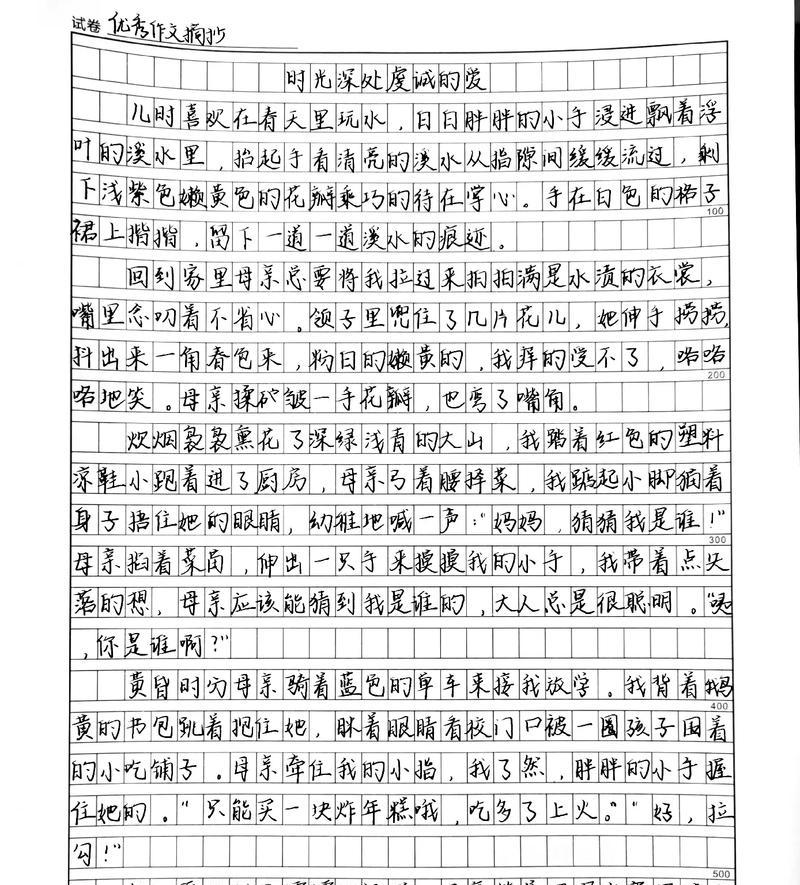 试卷 优秀作文摘抄
时光深处虔诚的爱
儿时喜欢在春天里玩水，白白胖胖的小手浸进飘着浮
叶的溪水里，抬起手看清亮的溪水从指隙间缓缓流过，剩
下浅紫色嫩黄色的花瓣乖巧的待在掌心。手在白色的格子
100
裙上揩揩，留下一道一道溪水的痕迹。
回到家里母亲总要将我拉过来拍拍满是水渍的衣裳，
嘴里念叨着不省心。领子里兜住了几片花儿，她伸手捞捞，
抖出来一角春色来，粉白的嫩黄的，我痒的受不了，咯咯
200
咯地笑。母亲揉皱一手花瓣，也弯了嘴角。
炊烟袅袅熏花了深绿浅青的大山，我踏着红色的塑料
凉鞋小跑着进了厨房，母亲弓着腰择菜，我踮起小脚猫着
身子捂住她的眼睛，幼稚地喊一声："妈妈，猜猜我是谁！"
300
母亲掐着菜茼，伸出一只手来摸摸我的小手，我带着点失
落的想，母亲应该能猜到我是谁的，大人总是很聪明。"咦
，你是谁啊？"
黄昏时分母亲骑着蓝色的单车来接我放学。我背着鹅
400
黄的书包跳着抱住她，眯着眼睛看校门口被一圈孩子围着
的小吃铺子。母亲牵住我的小指，我了然，胖胖的小手握
住她的。"只能买一块炸年糕哦，吃多了上火。""好，拉
勾！"
500